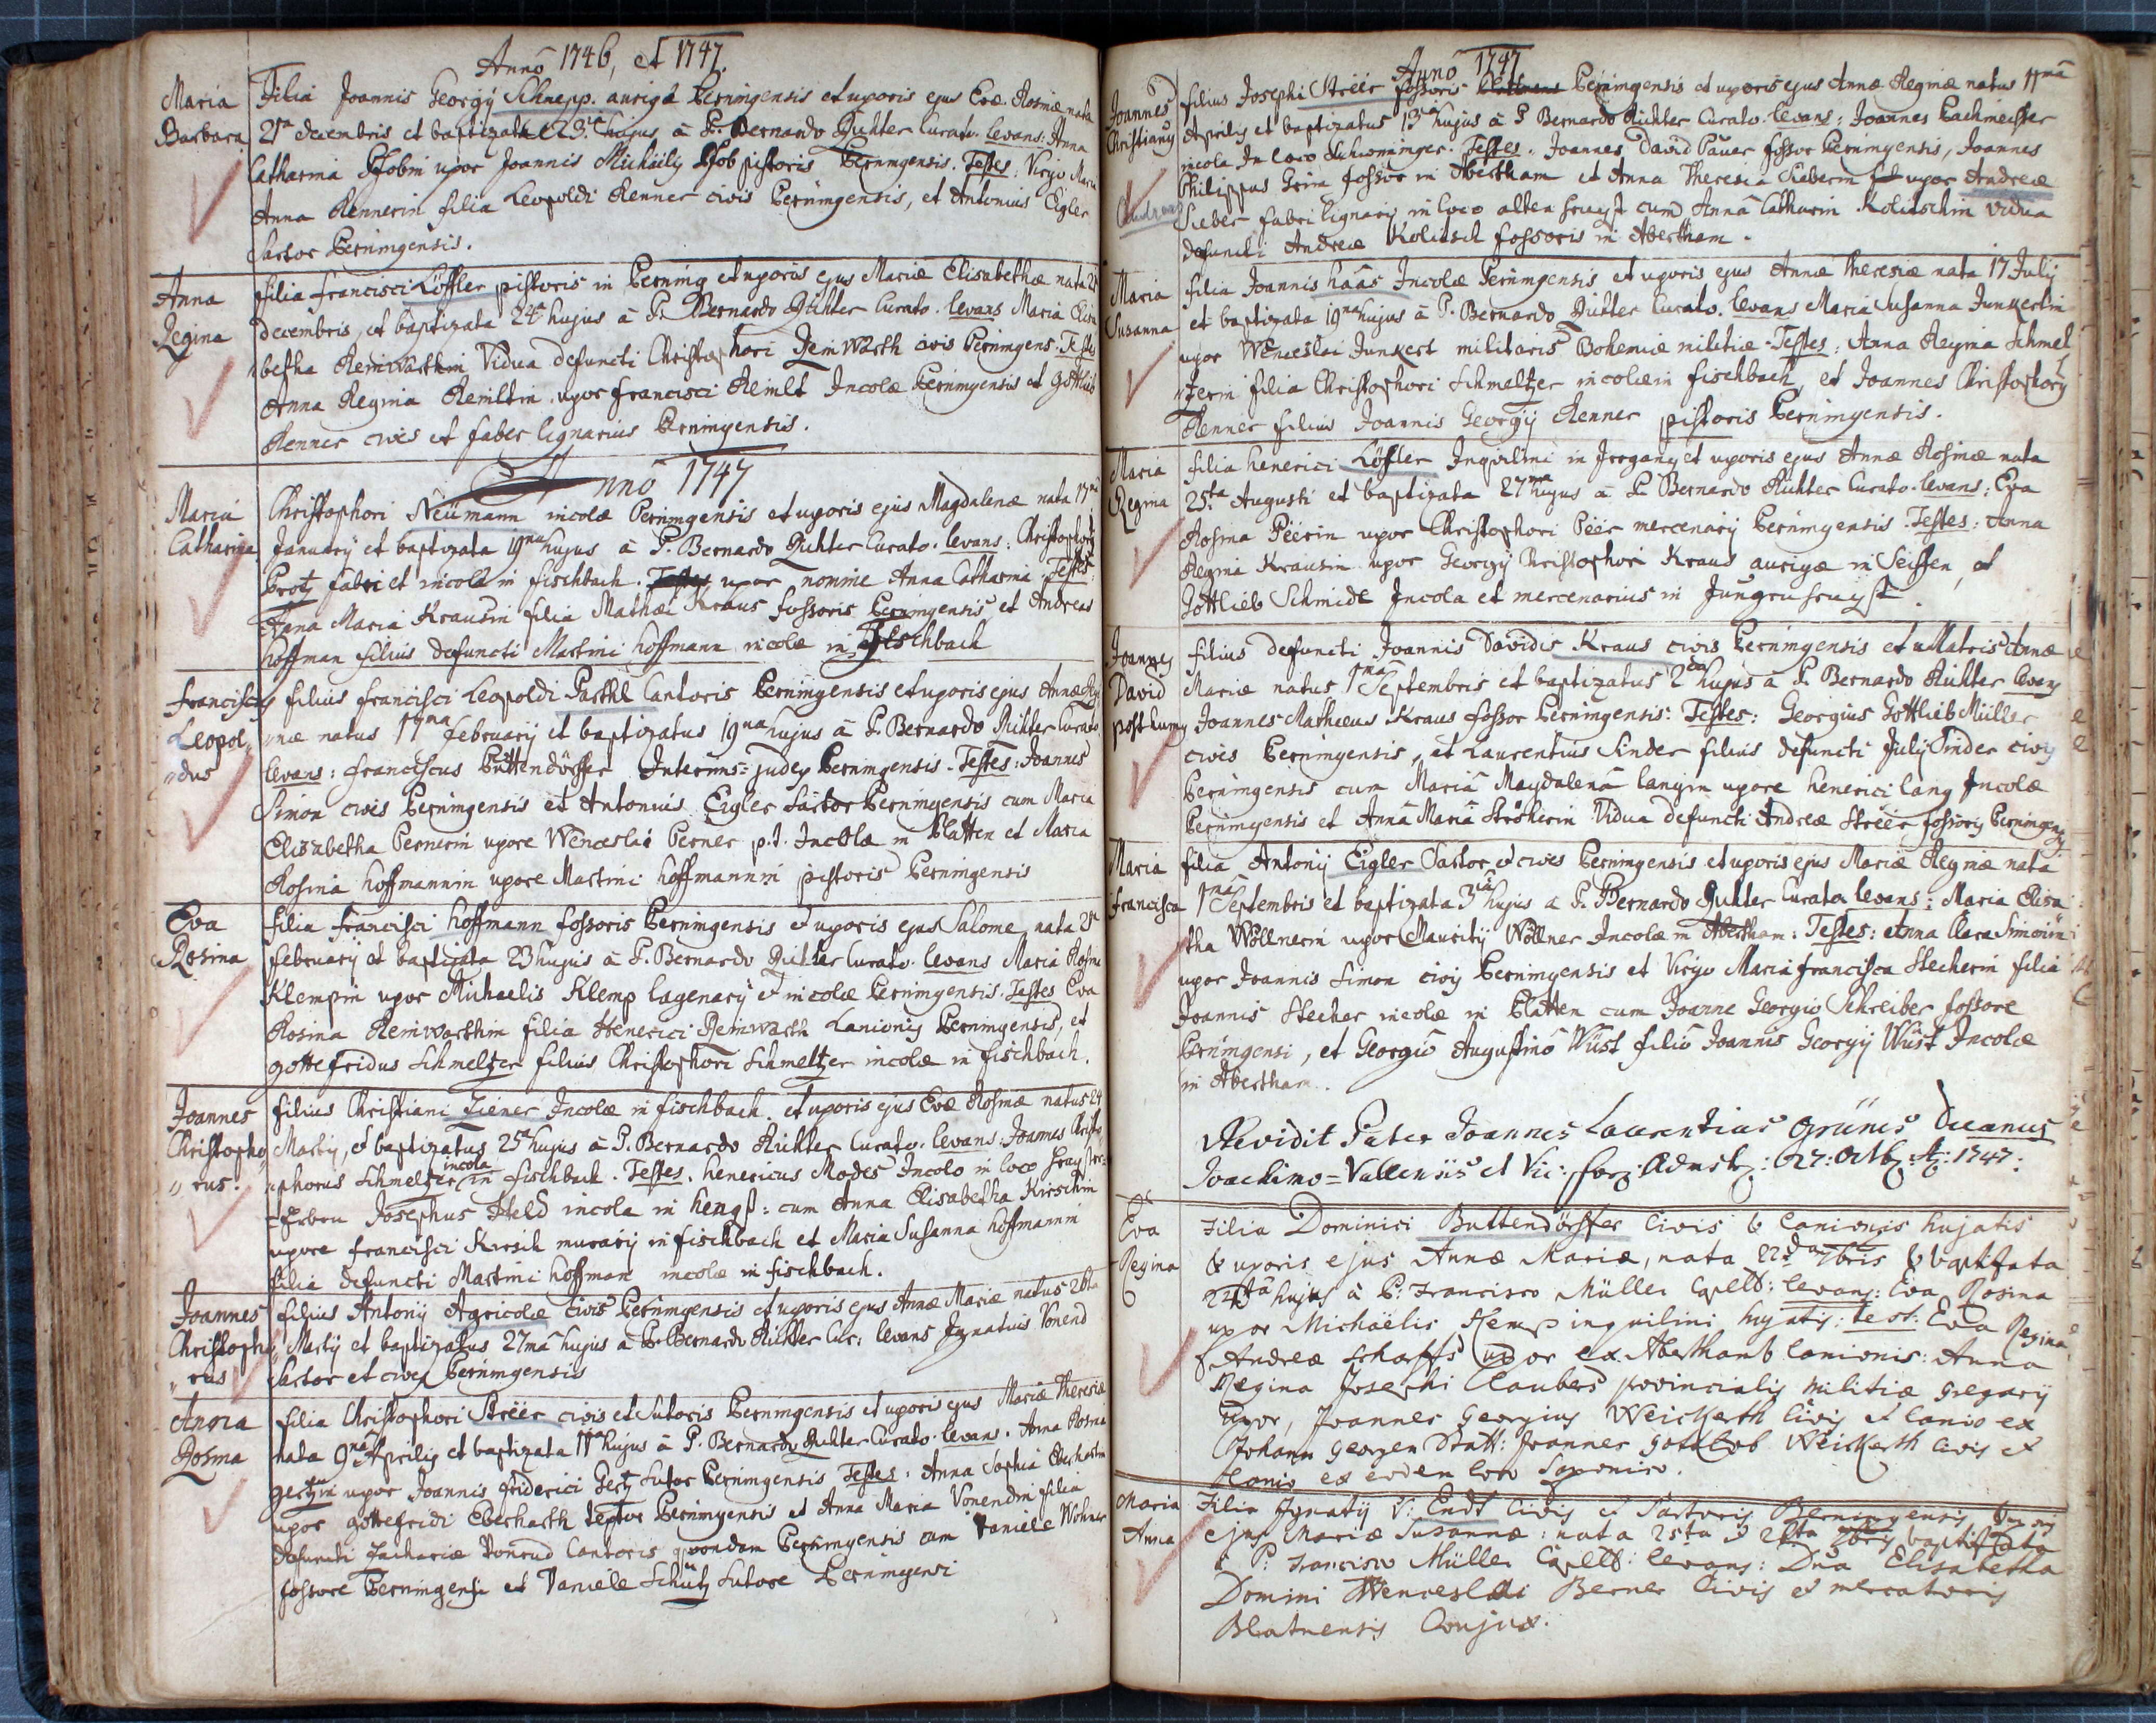 Anno 1746, et 1747.
Maria
Barbara
Filia Joannis Georgij Schnepp. aurigæ Perningensis et uxoris ejus Evæ Rosinæ nata
21a decembris et baptizata 23a hujus à P. Bernardo Richter Curato. levans: Anna
Catharina Pfobin uxor Joannis Michäelis Pfob pistoris Perningensis. Testes: Virgo Maria
Anna Rennerin filia Leopoldi Renner civis Perningensis, et Antonius Eigler
Sartor Perningensis.
Anna
Regina
filia Francisci Löffler pistoris in Perning et uxoris ejus Mariæ Elisabethæ nata
decembris, et baptizata 24a hujus à P. Bernardo Richter Curato. levans Maria Elisa
betha Reinwarthin Vidua defuncti Christophori Reinwarth civis Perningens: Testes
Anna Regina Remltin uxor Francisci Remlt Incolæ Perningensis et Gottlieb
Renner cives et faber lignarius Perningensis.
Anno 1747
Maria
Catharina
Christophori Neümann incolæ Perningensis et uxoris ejus Magdalenæ nata 17ma
January et baptizata 19na hujus à P. Bernardo Richter Curato. levans: Christophorus
Protz fabri et incolæ in fischbach. Testes uxor nomine Anna Catharina Testes:
Anna Maria Krausin filia Mathæi Kraus fossoris Perningensis et Andreas
hoffman filius defuncti Martini hoffmann incolæ in Fischbach
Franciscus
Leopol„
„dus
filius Francisci Leopoldi Parthl Cantoris Perningensis et uxoris ejus Annæ Re
„inæ natus 17ma february et baptizatus 19na hujus à P. Bernardo Richter Curato
levans: Franciscus Püttendörffer Interims=judex Perningensis. Testes: Joannes
Simon cives Perningensis et Antonius Eigler Sartor Perningensis cum Maria
Elisabetha Pernerin uxore Wenceslai Perner p.t. Incolæ in Platten et Maria
Rosina hoffmannin uxore Martini hoffmannin pistoris Perningensis
Eva
Rosina
filia Francisci hoffmann fossoris Perningensis et uxoris ejus Salome, nata
february et baptizata 23 hujus à P. Bernardo Richter Curato. levans Maria Rosina
Klempin uxor Michaelis Klemp lagenarÿ et incolæ Perningensis. Testes Eva
Rosina Reinwarthin filia Henerici Reinwarth Lanionis Perningensis, et
gottefridus Schmeltzer filius Christophori Schmeltzer incolæ in fischbach.
Joannes
Christopho„
„rus:
filius Christiani Ziener Incolæ in fischbach. et uxoris ejus Evæ Rosinæ natus 24
Martÿ, et baptizatus 25a hujus à P. Bernardo Richter Curato. levans: Joannes Christo
„phorus Schmeltzer incola in fischbach. Testes. henericus Modes Incolo in loco
Josephus Held incola in hengst: cum Anna Elisabetha Kirschin
uxore Francisci Kirsch murarÿ in fischbach et Maria Susanna hoffmannin
filia defuncti Martini hoffman incolæ in fischbach.
Joannes
Christopho„
„rus
filius Antonÿ Agricolæ civis Perningensis et uxoris ejus Annæ Mariæ natus 26ta
Martÿ et baptizatus 27ma hujus à P. Bernardo Richter Cur: levans Ignatius Vonend
Sartor et cives Perningensis
Anna
Rosina
filia Christophori Stréér civis et Sutoris Perningensis et uxoris ejus Mariæ Theresiæ
nata 9na Aprilis et baptizata 11ma hujus à P. Bernardo Richter Curato. levans. Anna Rosina
gertzin uxor Joannis friderici Gertz Sutor Perningensis Testes: Anna Sophia Eberharthin
uxor gottefridi Eberharth textor Perningensis et Anna Maria Vonendin filia
defuncti Zachariæ Vonend Cantoris quondam Perningensis cum Daniele Wohner
fossore Perningensi et Daniele Schütz Sutore Perningensi
Anno 1747
Joannes
Christianus
filius Josephi Stréér fossoris Perningensis et uxoris ejus Annæ Reginæ natus 11ma
Aprilis et baptizatus 13tia hujus à P Bernardo Richter Curato. levans: Joannes Pachmeisser
incola In loco Schwiminger. Testes. Joannes David Paüer fossor Perningensis, Joannes
Philippus Grim fossor in Abertham et Anna Theresia Sieberin uxor Andreæ
Sieber fabri lignarÿ in loco alten hruyst cum Anna Catharin Kolitschin vidua
defuncti Andreæ Kolitsch fossoris in Abertham.
Maria
Susanna
filia Joannis haás Incolæ Perningensis et uxoris ejus Annæ Theresiæ nata 17 July
et baptizata 19na hujus à P. Bernardo Richter Curato. levans Maria Susanna Junkertin
uxor Wenceslai Junkert militaris Bohemiæ militiæ. Testes: Anna Regina Schmel
„tzerin filia Christophori Schmeltzer incolæ in fischbach, et Joannes Christophorus
Renner filius Joannis Georgÿ Renner pistoris Perningensis.
Maria
Regina
filia henerici Löffler Inquilini in Irrgang et uxoris ejus Annæ Rosinæ nata
25ta Augusti et baptizata 27ma hujus à P. Bernardo Richter Curato. levans: Eva
Rosina Péérin uxor Christophori Péér mercenarÿ Perningensis. Testes: Anna
Regina Krausin uxor Georgÿ Christophori Kraus aurigæ in Seiffen, et
Gottlieb Schmidt Incola et mercenarius in Jungenhruyst.
Joannes
David
posthumus
filius defuncti Joannis Davidis Kraus civis Perningensis et Matris Annæ
Mariæ natus 1ma Septembris et baptizatus 2da hujus à P. Bernardo Richter levans
Joannes Matheus Kraus fossor Perningensis: Testes: Georgius Gottlieb Müller
cives Perningensis, et Laurentius Sinder filius defuncti July Sinder civis
Perningensis cum Maria Magdalena langin uxore henerici lang Incolæ
Perningensis et Anna Maria Ströherin Vidua defuncti Andreæ Stréér fossoris Perningensis
Maria
Francisca
filia Antonÿ Eigler Sartor et cives Perningensis et uxoris ejus Mariæ Reginæ nata
1ma Septembris et baptizata 3tia hujus a P. Bernardo Richter Curato. levans: Maria Elisa
tha Wöllnerin uxor Mauritÿ Wöllner Incolæ in Abertham: Testes: Anna Clara Simonin
uxor Joannis Simon civis Perningensis et Virgo Maria Francisca Stecherin filia
Joannis Stecher incolæ in Platten cum Joanne Georgio Schreiber fossore
Perningensi, et Georgio Augustino Wüst filio Joannis Georgÿ Wüst Incolæ
in Abertham.
Revidit Pater Joannes Laurentius Grünes Decanus
Joachimo=Vallensis et Vic: for: 27: Octb: A: 1747:
Eva
Regina
Filia Dominici Buttendörffer Civis & Lanionis hujatis
& uxoris ejus Annæ Mariæ, nata 22da 7bris & baptizata
24ta hujus à P: Francisco Müller Capell: levans: Eva Rosina
uxor Michaëlis Klemp inquilini hujatis: test: Eva Regina
Andreæ Scharffs uxor ex Aberthamb Lanionis: Anna
Regina Josephi Claubers provincialis militiæ gregarÿ
uxor, Joannes Georgius Weickerth Civis et Lanio ex
Johann Georgen Statt: Joannes Gottlob Weickerth Civis et
Lanio ex eodem loco Saxonico.
Maria
Anna
Filia Ignatÿ V: Endt Civis et Sartoris Berningensis, Uxoris
ejus Mariæ Susannæ: nata 25ta & 26ta 7bris baptizata
à P: Francisco Müller Capell: levans: Dna Elisabetha
Domini Wenceslai Berner Civis et mercatoris
Blatnensis Conjux.